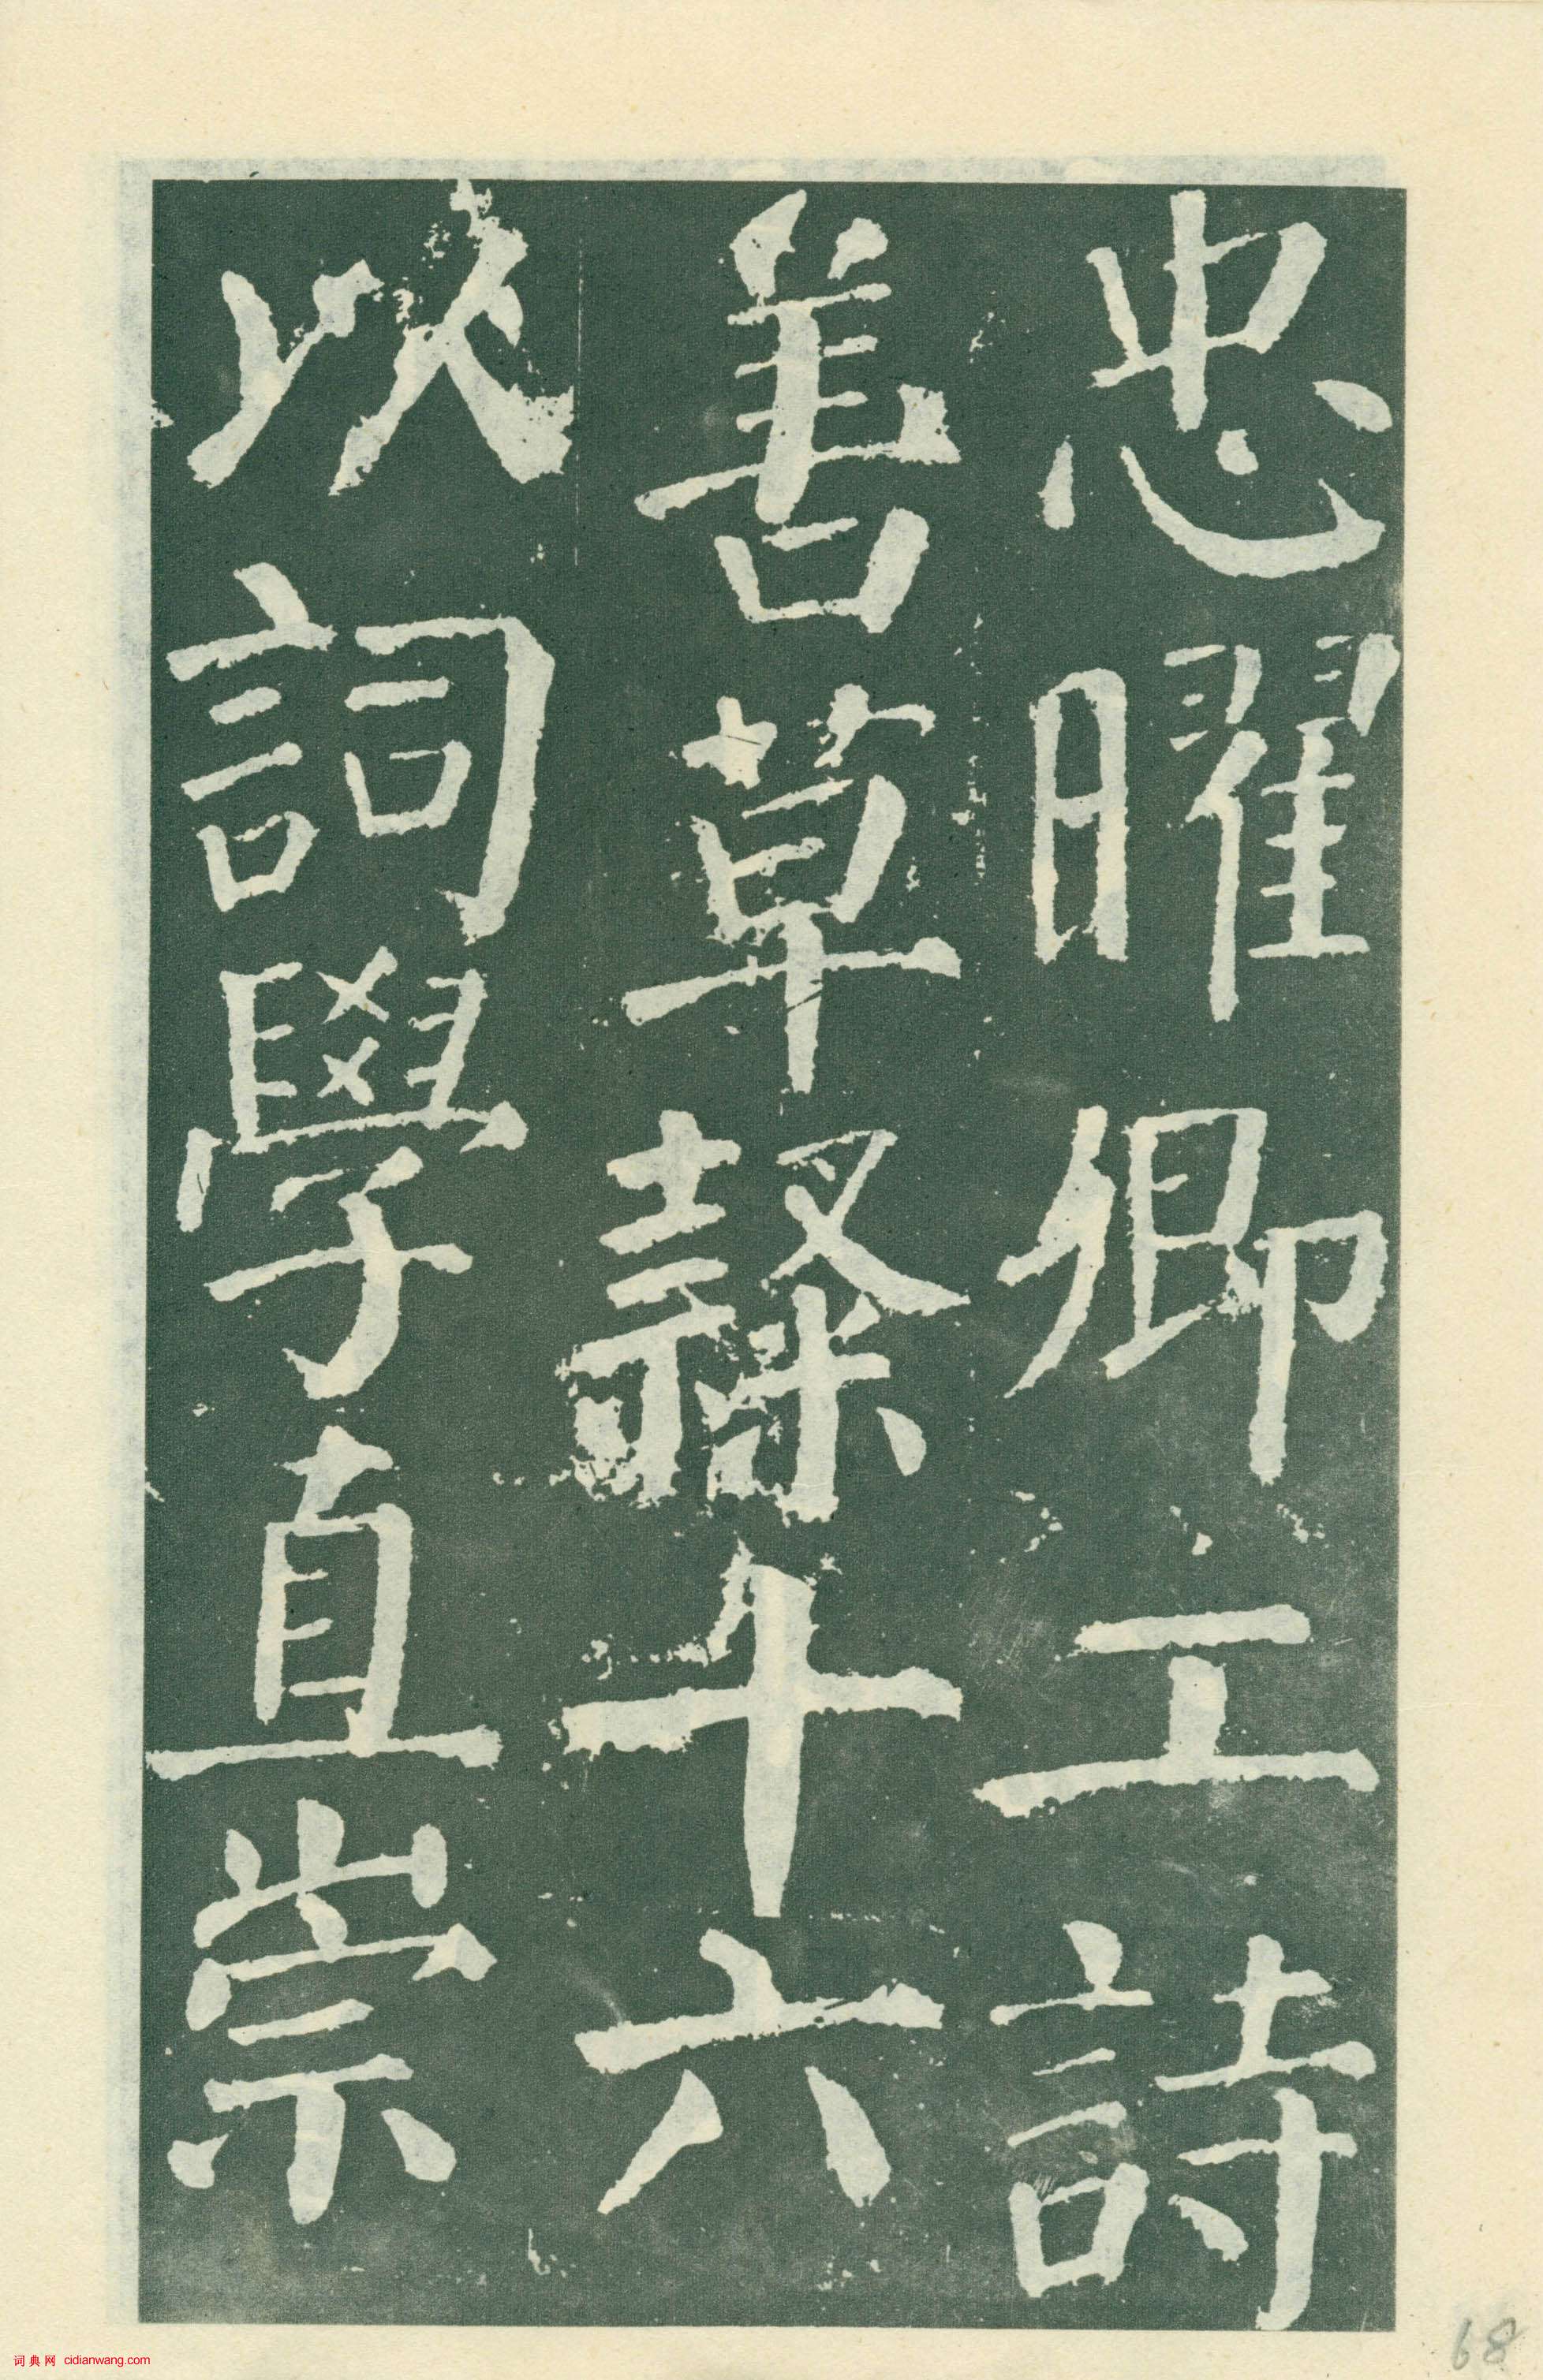 忠曜卿工詩
善草隸十六
以詞學直崇
68
词典网 cidianwang.com